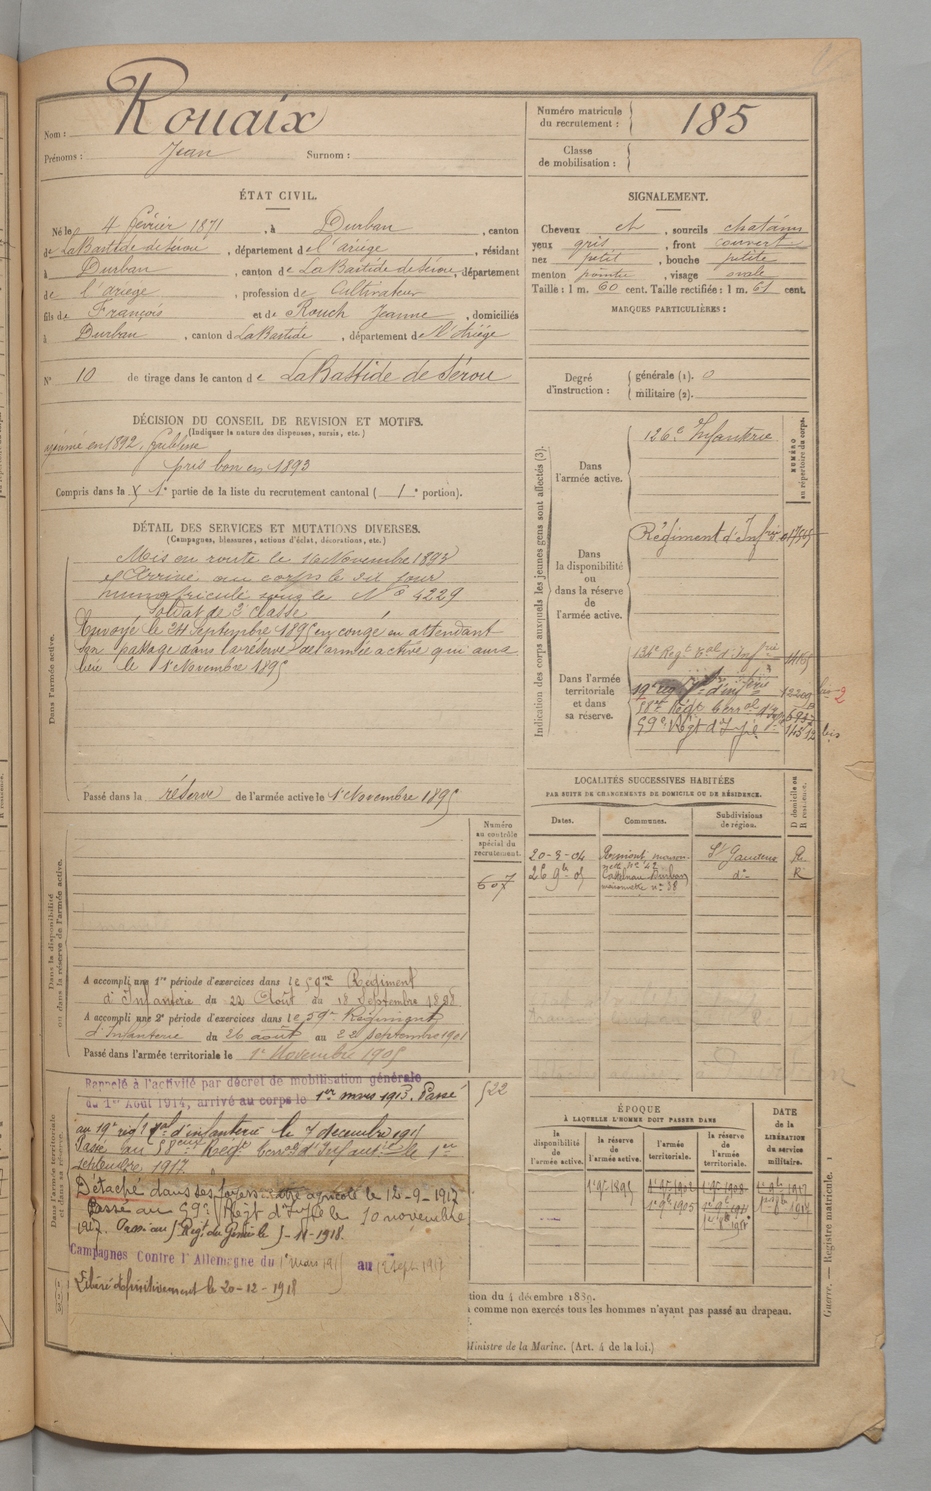 Nom : Rouaix
Prénoms : Jean Surnom :
ÉTAT CIVIL.
Né le 4 février 1871, à Durban, canton
de LaBastide de Sérou, département de l'ariège, résidant
à Durban, canton de LaBastide de Sérou, département
de l'ariège, profession de Cultivateur
fils de François et de Rouch Jeanne, domiciliés
à Durban, canton d LaBastide, département de l'Ariège
N° 10 de tirage dans le canton de LaBastide de Sérou
DÉCISION DU CONSEIL DE REVISION ET MOTIFS.
(Indiquer la nature des dispenses, sursis, etc.)
ajourné en 1892, faiblesse
pris bon en 1893
Compris dans la 1e partie de la liste du recrutement cantonal ( 1e portion).
DÉTAIL DES SERVICES ET MUTATIONS DIVERSES.
(Campagnes, blessures, actions d'éclat, décorations, etc.)
Dans l'armée active.
Mis en route le 16 Novembre 1893
et Arrivé au corps le dit jour
immatriculé sous le N° 4229
Soldat de 2e classe
Envoyé le 24 Septembre 1895 en congé en attendant
son passage dans la réserve de l'armée active qui aura
lieu le 1 Novembre 1895
Passé dans la réserve de l'armée active le 1 Novembre 1895
Dans la disponibilité
ou dans la réserve de l'armée active.
Numéro
au contrôle
spécial du
recrutement.
607
A accompli une 1re période d'exercices dans le 59me Régiment
d'Infanterie du 22 Août au 18 Septembre 1898
A accompli une 2e période d'exercices dans le 59e Régiment
d'Infanterie du 26 août au 22 septembre 1901
Passé dans l'armée territoriale le 1er Novembre 1905
Dans l'armée territoriale
et dans sa réserve.
522
Rappelé à l'activité par décret de mobilisation générale
du 1er Août 1914, arrivé au corps le 1er mars 1915. Passé
au 19e rég. t al d'infanterie le 7 décembre 1915
Passé au 58eme Régt terr al d'Infanterie le 1er
septembre 1917.
Détaché dans ses foyers agricole le 12-9-1917
Passé au 59e Régt d'Infie le 10 novembre
1917. Passé au Regt du Génie le 5-11-1918.
Campagnes Contre l'Allemagne du 1 Mars 1915 au 12 Sept 1917
Libéré définitivement le 20-12-1918
Numéro matricule
du recrutement : 185
Classe
de mobilisation :
SIGNALEMENT.
Cheveux ch, sourcils chatains
yeux gris, front couvert
nez petit, bouche petite
menton pointu, visage ovale
Taille : 1 m. 60 cent. Taille rectifiée : 1 m. 61 cent.
MARQUES PARTICULIÈRES :
Degré
d'instruction :
générale (1). 0
militaire (2).
Indication des corps auxquels les jeunes gens sont affectés (3).
NUMÉRO
au répertoire du corps.
Dans
l'armée active.
126e Infanterie
Dans
la disponibilité
ou
dans la réserve
de
l'armée active.
Régiment d'Infrie
Dans l'armée
territoriale
et dans
sa réserve.
134e Regt d'Infrie
19e rég d'inf
58me Régt terr al d'Inf
59e Régt d'Infie
LOCALITÉS SUCCESSIVES HABITÉES
PAR SUITE DE CHANGEMENTS DE DOMICILE OU DE RÉSIDENCE.
Dates.
Communes.
Subdivisions
de région.
D domicile ou
R résidence.
20-3-04 maison- St Gaudens R
nette n° 42
26 9b 05 Castelnau Durban do R
maisonnette n° 38
ÉPOQUE
À LAQUELLE L'HOMME DOIT PASSER DANS
DATE
DE LA
LIBÉRATION
du service
militaire.
la
disponibilité
de
l'armée active.
la réserve
de
l'armée active.
l'armée
territoriale.
la réserve
de
l'armée
territoriale.
1 9b 1895 1 9b 1902 1 9b 1908 1 9b 1917
1 9b 1905 1 9b 1911
tion du 4 décembre 1889.
comme non exercés tous les hommes n'ayant pas passé au drapeau.
Ministre de la Marine. (Art. 4 de la loi.)
Guerre. — Registre matricule. 1